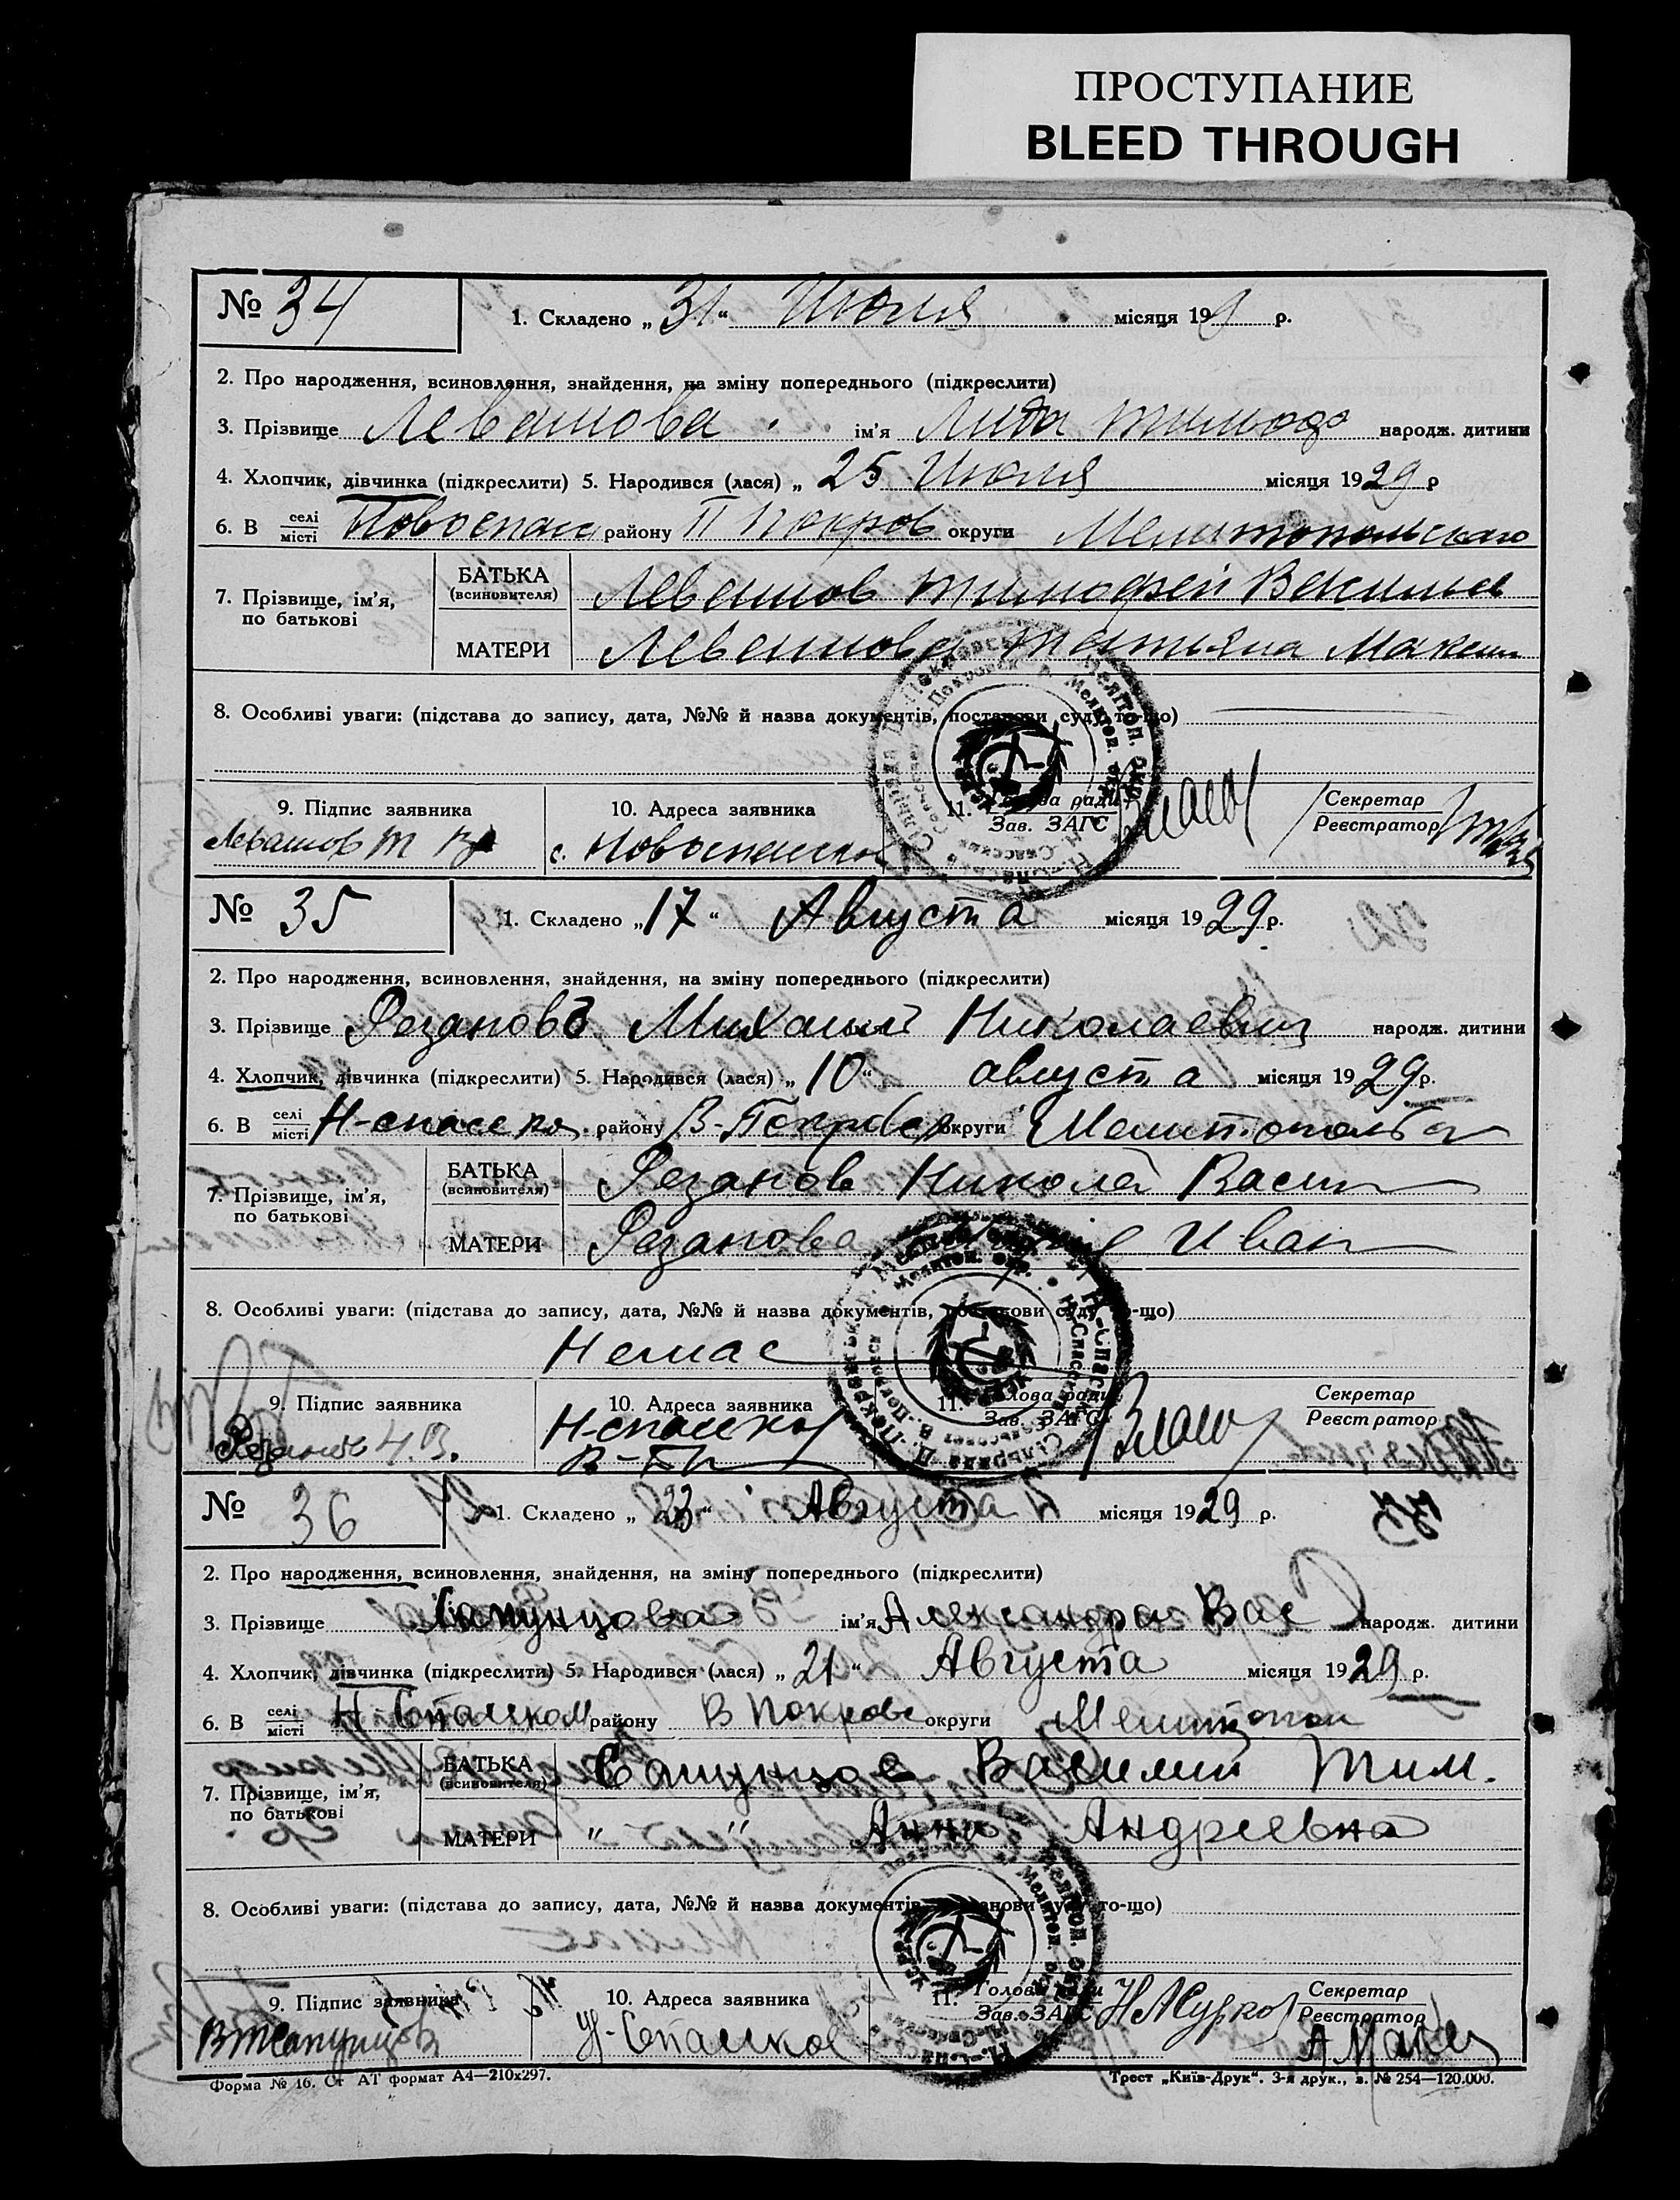 ПРОСТУПАНИЕ
BLEED THROUGH
№ 34
1. Складено „31“ Июля місяця 19 р.
2. Про народження, всиновлення, знайдення, на зміну попереднього (підкреслити)
3. Прізвище Левашова ім'я Лида народж. дитини
4. Хлопчик, дівчинка (підкреслити) 5. Народився (лася) „ 25 Июля місяця 1929 р
6. В селі/місті Новоспасс району П Покров округи Мелитопольского
7. Прізвище, ім'я, по батькові
БАТЬКА (всиновителя) Левашов Тимофей Васильев
МАТЕРИ Левашова Татьяна Максим
8. Особливі уваги: (підстава до запису, дата, №№ й назва документів, постанови суду то-що)
9. Підпис заявника 10. Адреса заявника 11. Голова ради/Зав. ЗАГС Секретар/Реєстратор
Левашов Т с. Новоспасско
№ 35
1. Складено „17“ Августа місяця 1929 р.
2. Про народження, всиновлення, знайдення, на зміну попереднього (підкреслити)
3. Прізвище Резановъ Михаил Николаевич народж. дитини
4. Хлопчик, дівчинка (підкреслити) 5. Народився (лася) „10“ августа місяця 1929 р.
6. В селі/місті Н-спасско району В-Покровск округи
7. Прізвище, ім'я, по батькові
БАТЬКА (всиновителя) Резанов Николай Васил
МАТЕРИ Резанова Иван
8. Особливі уваги: (підстава до запису, дата, №№ й назва документів, постанови суду то-що)
Немає
9. Підпис заявника 10. Адреса заявника 11. Голова ради/Зав. ЗАГС Секретар/Реєстратор
Резанов Н. В. Н-спасско
№ 36
1. Складено „23“ Августа місяця 1929 р.
2. Про народження, всиновлення, знайдення, на зміну попереднього (підкреслити)
3. Прізвище Сапунцова ім'я Александра Вас народж. дитини
4. Хлопчик, дівчинка (підкреслити) 5. Народився (лася) „21“ Августа місяця 1929 р.
6. В селі/місті Н Спасском району В Покровс округи Мелитопол
7. Прізвище, ім'я, по батькові
БАТЬКА (всиновителя) Сапунцов Василий Тим.
МАТЕРИ " " Анна Андреевна
8. Особливі уваги: (підстава до запису, дата, №№ й назва документів, постанови суду то-що)
9. Підпис заявника 10. Адреса заявника 11. Голова ради/Зав. ЗАГС Секретар/Реєстратор
ВТСапунцов Н-Спаско
Форма № 16. Ст АТ формат А4—210x297. Трест „Київ-Друк“. 3-я друк., з. № 254—120.000.